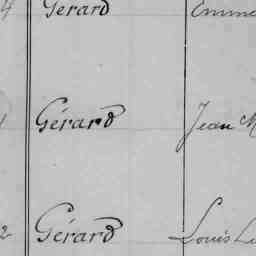 4 Gerard
Gérard Jean M
2 Gérard Louis